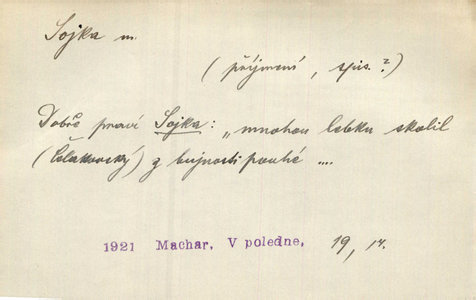 Sojka m.
(příjmení, spis.?)
Dobře praví Sojka: „mnohou lebku skolil
(Čelakovský) z bujnosti pouhé ....
1921 Machar, V poledne, 19, 14.